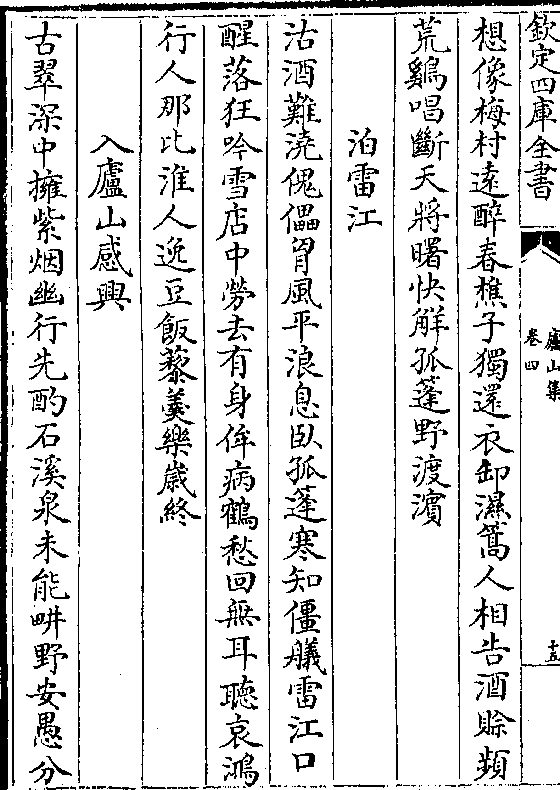 欽定四庫全書
廬山集
卷四
十五
想像梅村遠醉春樵子獨還衣卸濕篙人相告酒賒頻
荒鷄唱斷天將曙快解孤蓬野渡濵
泊雷江
沽酒難澆傀儡胷風平浪息臥孤蓬寒知僵艤雷江口
醒落狂吟雪店中勞去有身侔病鶴愁回無耳聽哀鴻
行人那比淮人逸豆飯藜羮樂歲終
入廬山感興
古翠深中擁紫烟幽行先酌石溪泉未能畊野安愚分